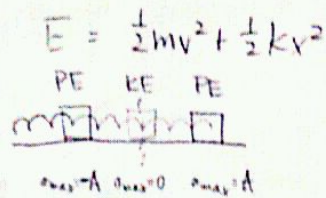 E = ½mv² + ½kx²
PE KE PE
a_max=-A a_max=0 a_max=A